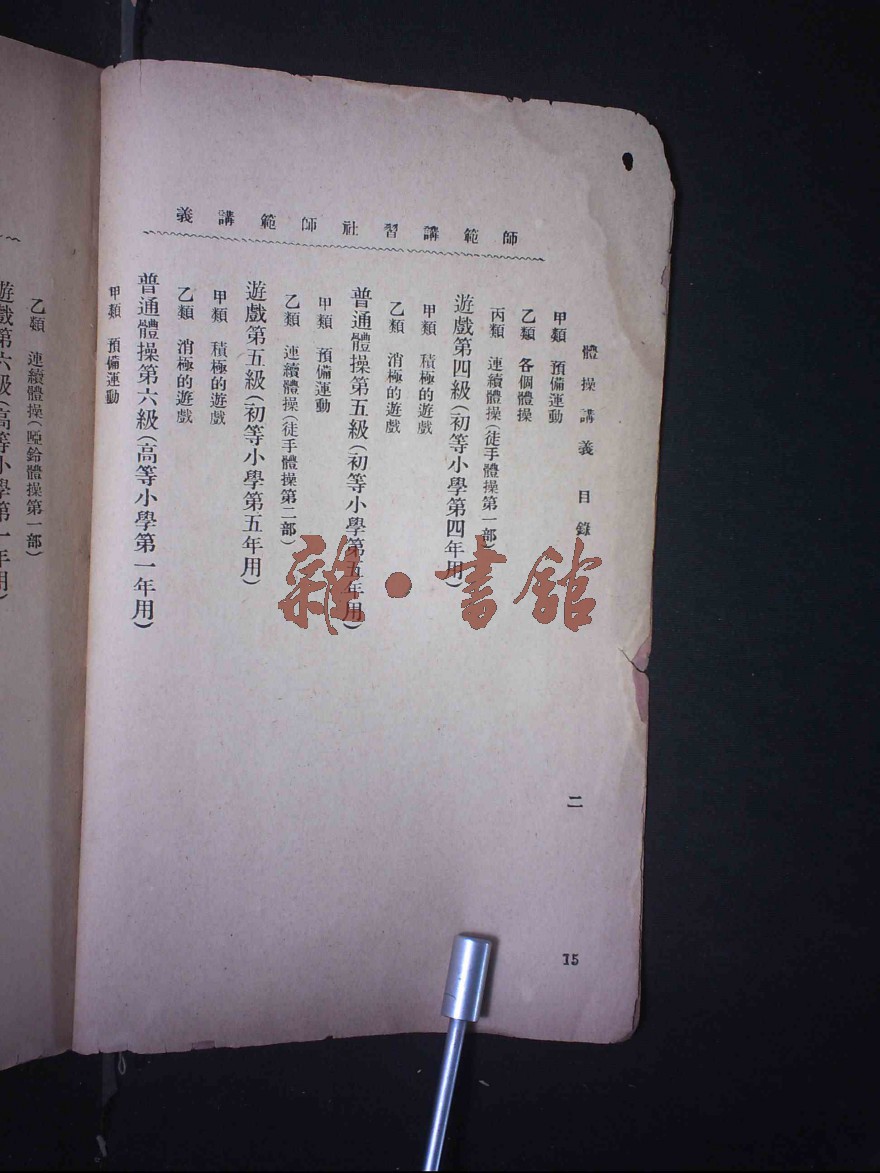 師範講習社師範講義
體操講義 目錄
二
15
甲類 預備運動
乙類 各個體操
丙類 連續體操(徒手體操第一部)
遊戲第四級(初等小學第四年用)
甲類 積極的遊戲
乙類 消極的遊戲
普通體操第五級(初等小學第五年用)
甲類 預備運動
乙類 連續體操(徒手體操第二部)
遊戲第五級(初等小學第五年用)
甲類 積極的遊戲
乙類 消極的遊戲
普通體操第六級(高等小學第一年用)
甲類 預備運動
乙類 連續體操(啞鈴體操第一部)
遊戲第六級(高等小學第一年用)
雜·書館